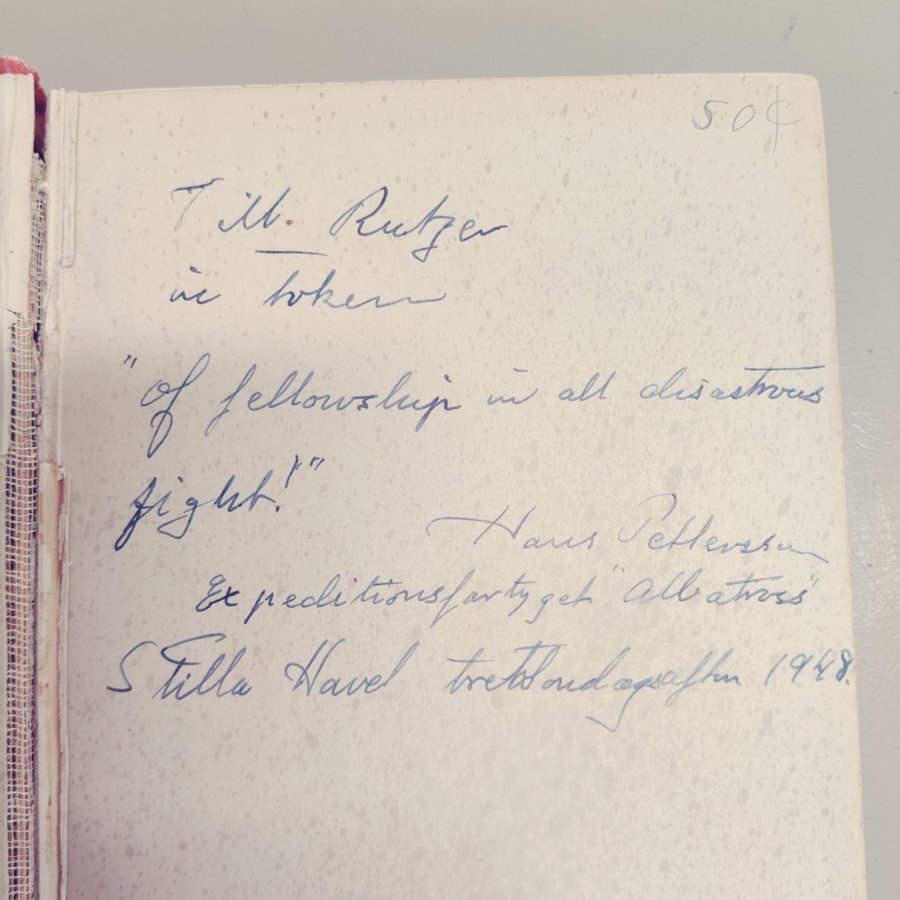 50¢
Till Rutger
in token
"of fellowship in all disastrous
fight!"
Hans Pettersson
Expeditionsfartyget "Albatross"
Stilla Havet trettondagsafton 1948.